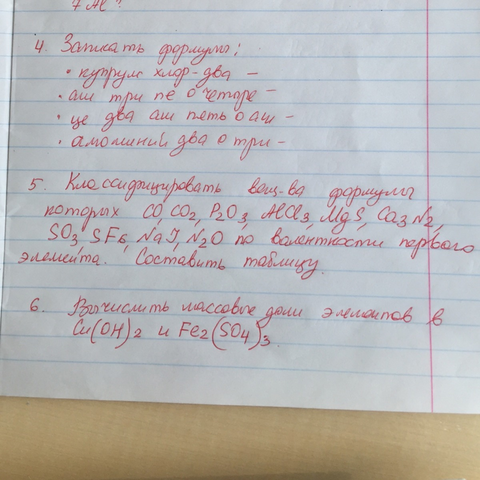 7 Al?
4. Записать формулы:
• купрум хлор-два –
• аш три пе о четыре –
• це два аш пять о аш –
• алюминий два о три –
5. Классифицировать вещ-ва формулы
которых CO, CO2, P2O3, AlCl3, MgS, Ca3N2,
SO3, SF6, NaI, N2O по валентности первого
элемента. Составить таблицу.
6. Вычислить массовые доли элементов в
Cu(OH)2 и Fe2(SO4)3.